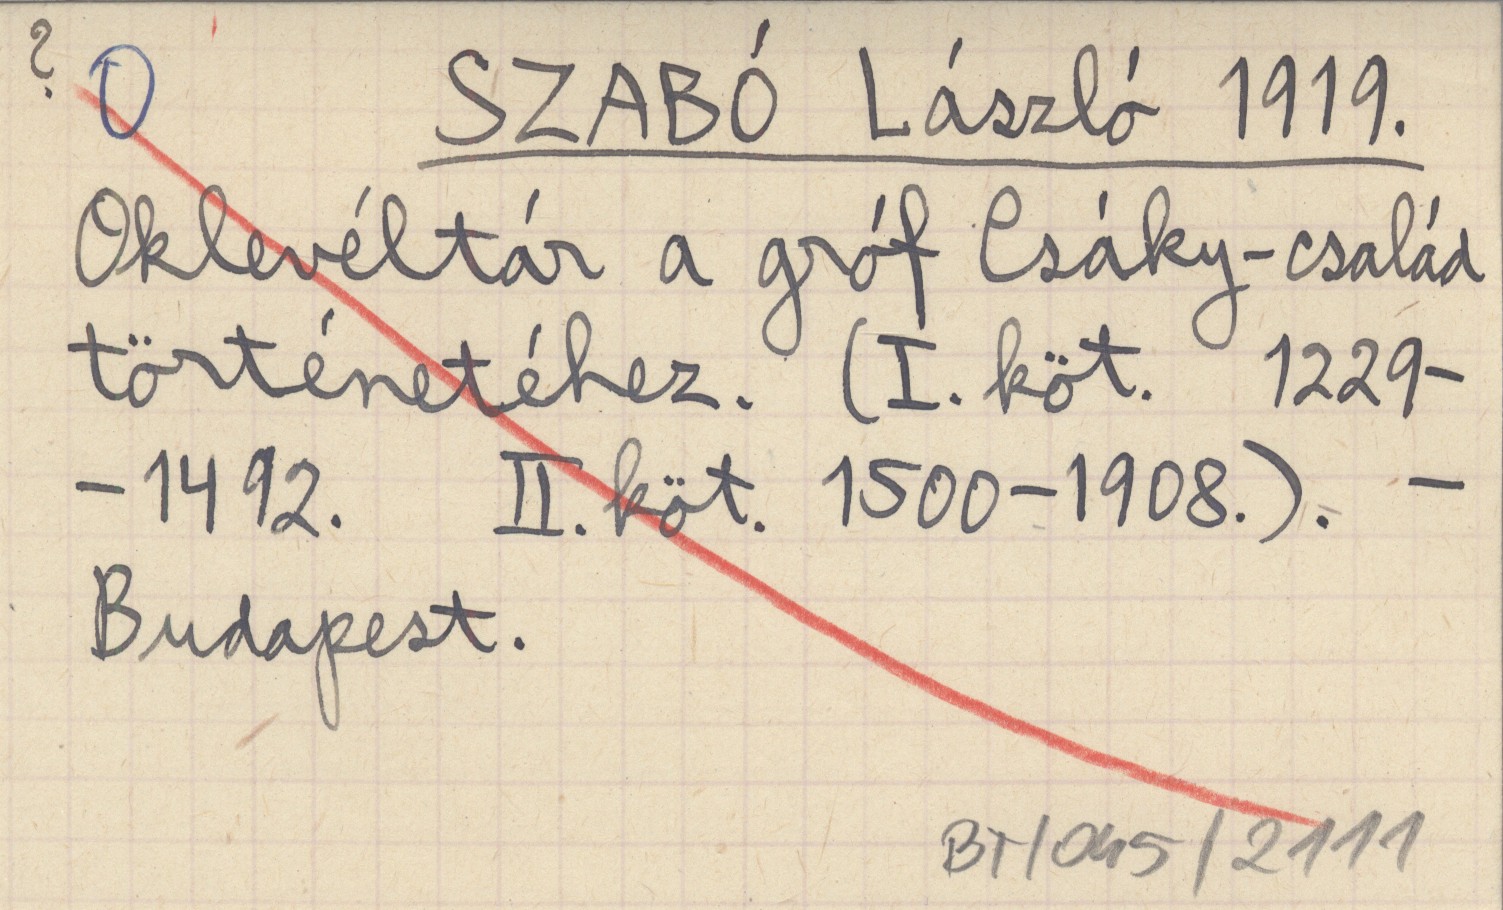 ? O SZABÓ László 1919.
Oklevéltár a gróf Csáky-család
történetéhez. (I. köt. 1229-
-1492. II. köt. 1500-1908.). -
Budapest.
BT/045/2111